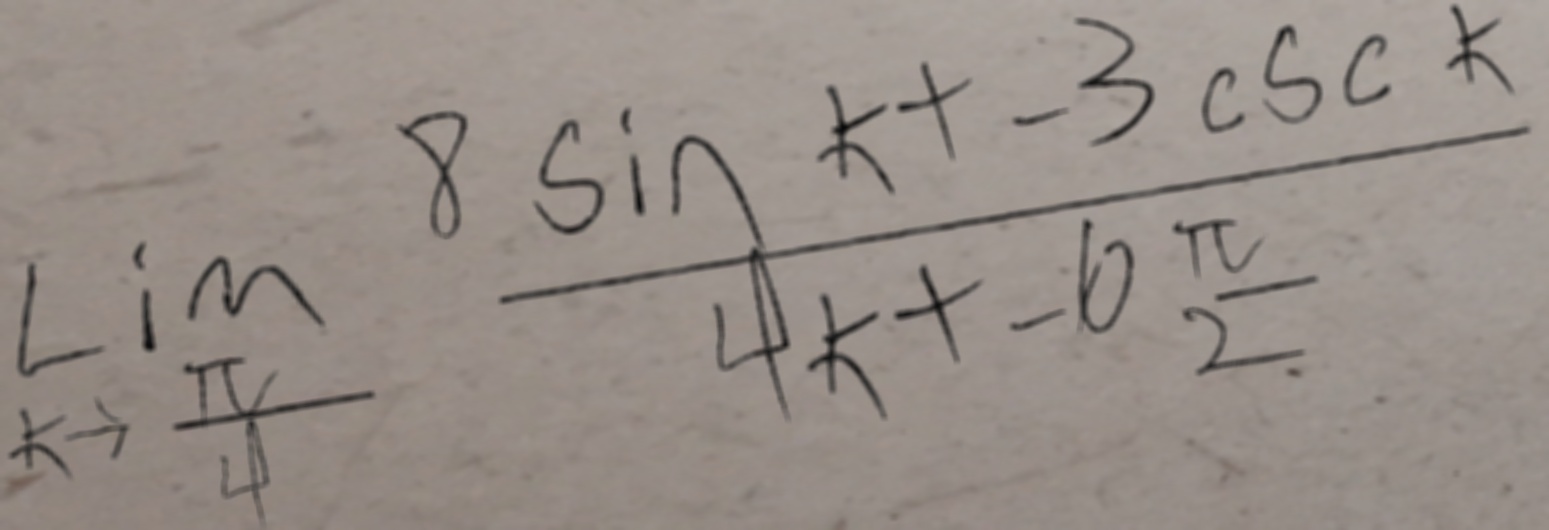 Lim k→π/4 (8 sin k + -3 csc k)/(4k + -6 π/2)